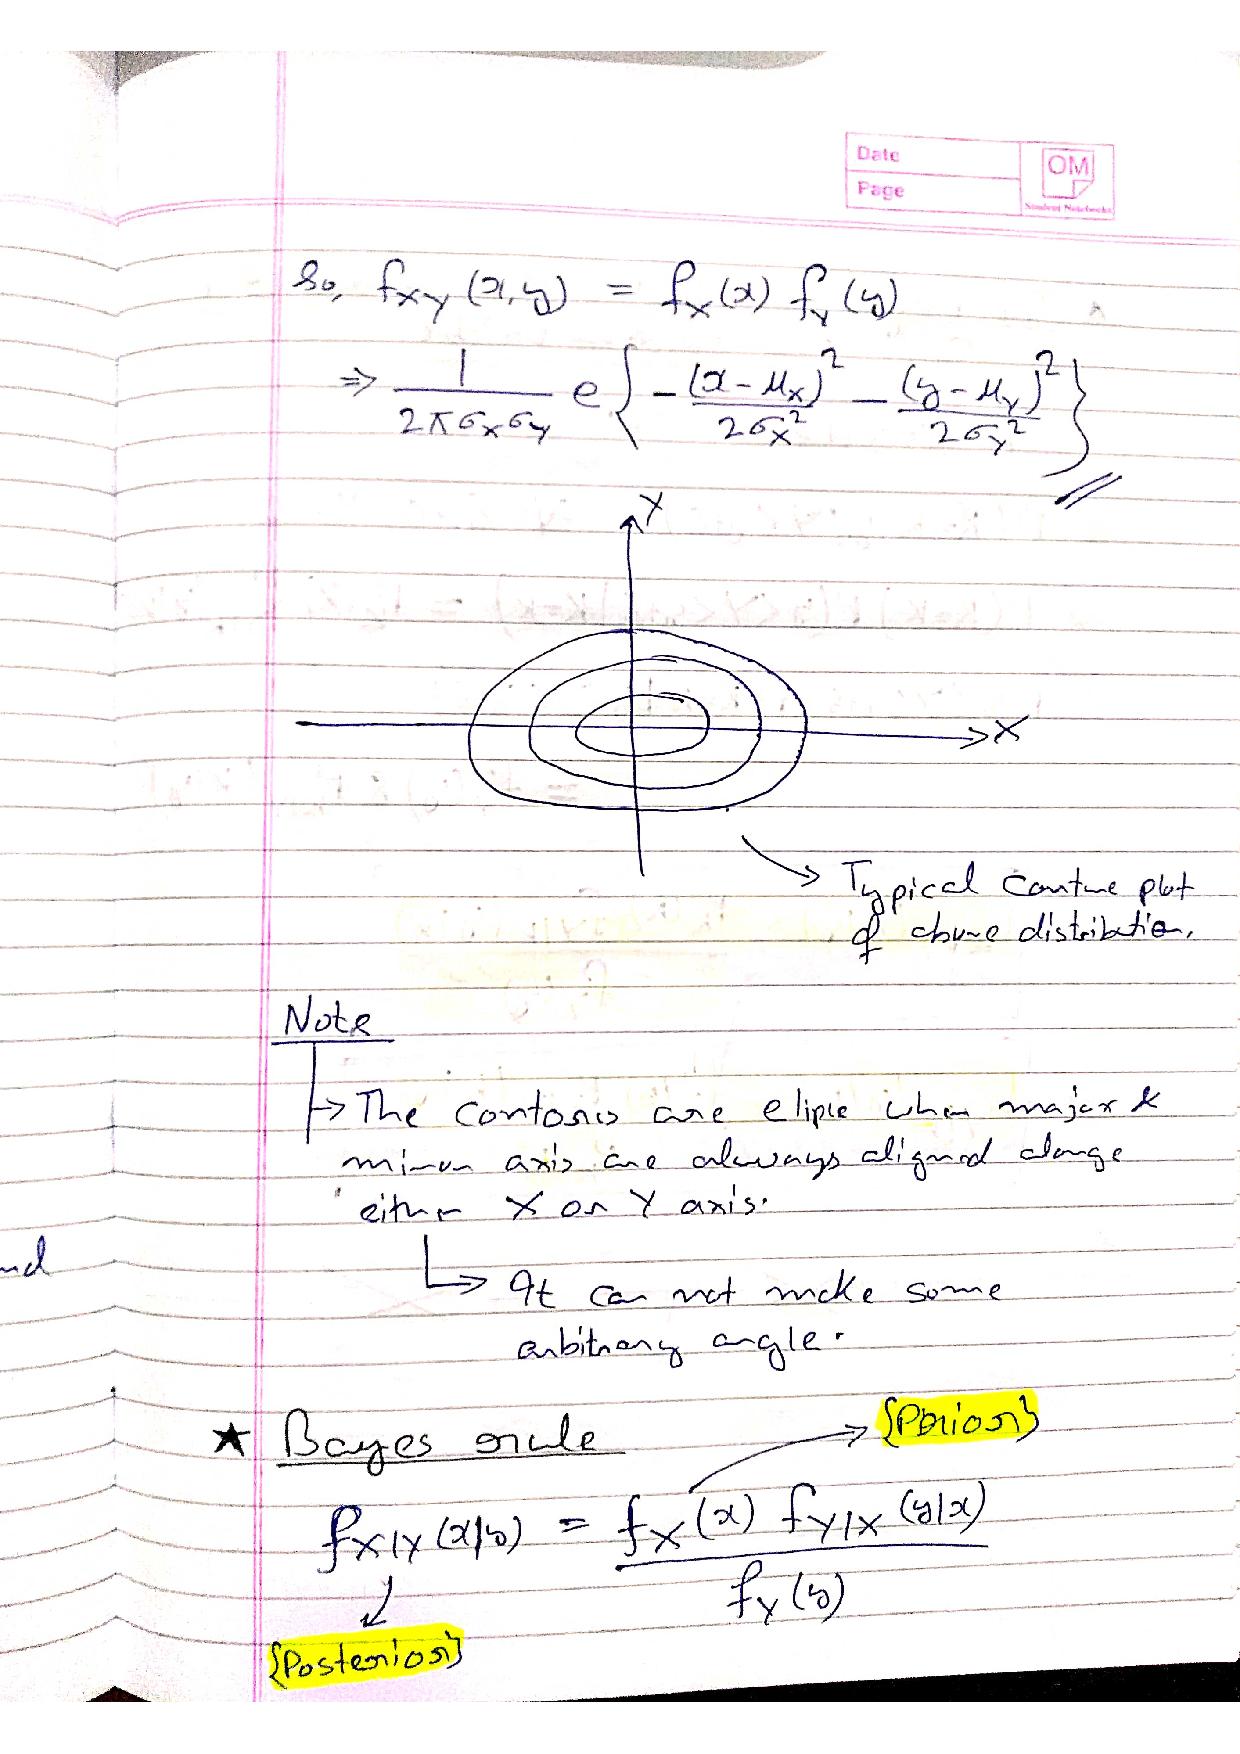 Date
Page
OM
Student Notebooks
So, f_XY (x, y) = f_X (x) f_Y (y)
=> 1 / (2πσ_X σ_Y) e { - (x - μ_X)^2 / 2σ_X^2 - (y - μ_Y)^2 / 2σ_Y^2 }
Y
X
Typical Conture plot
of above distribution.
Note
→ The contours are elipse when major &
minor axis are always aligned alonge
either X or Y axis.
→ It can not make some
arbitrary angle.
nd
★ Bayes rule
→ {Prior}
f_X|Y (x|y) = f_X (x) f_Y|X (y|x) / f_Y (y)
{Posterior}